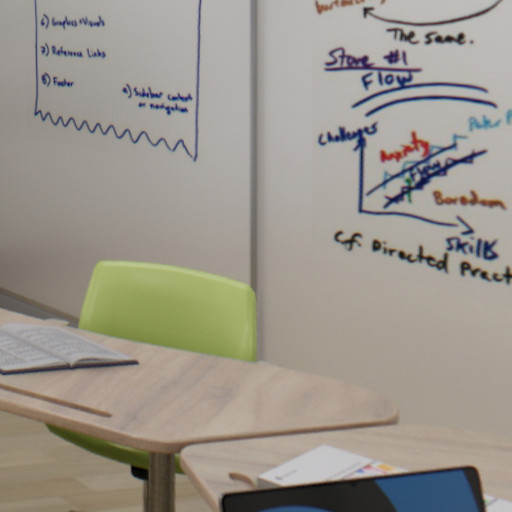 6) Graphics + Visuals
7) Reference Links
8) Footer
9) Sidebar content
or navigation
The same.
Store #1
FLOW
Challenges
Anxiety
Flow
Boredom
Skills
Cf. Directed Pract